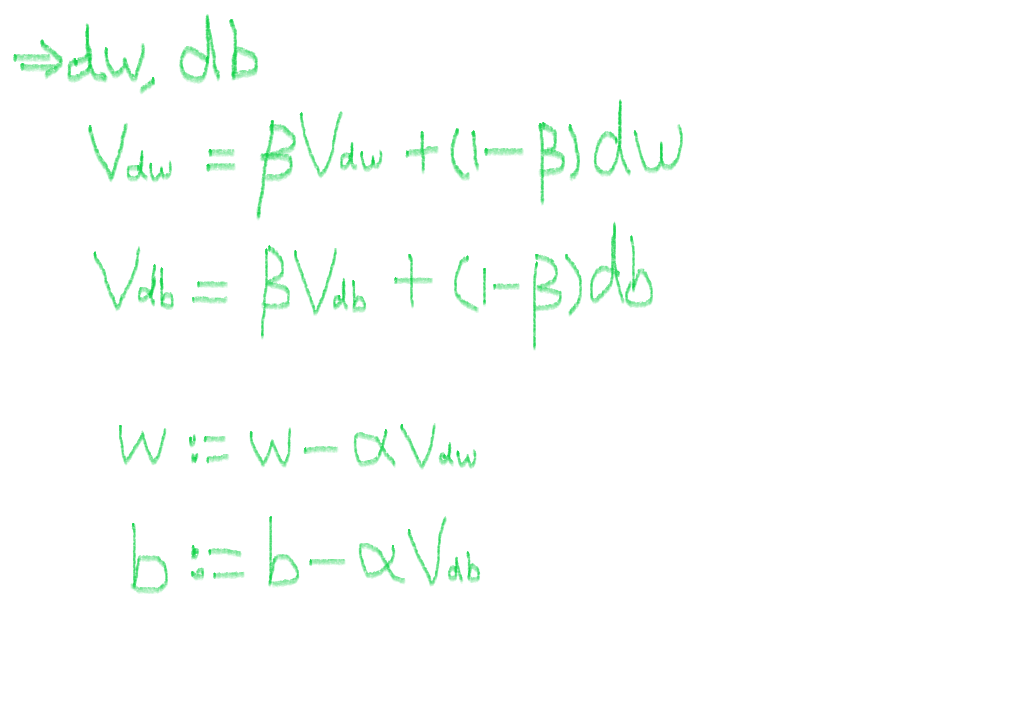 ⇒dw, db
V_dw = βV_dw + (1-β)dw
V_db = βV_db + (1-β)db
w := w - αV_dw
b := b - αV_db